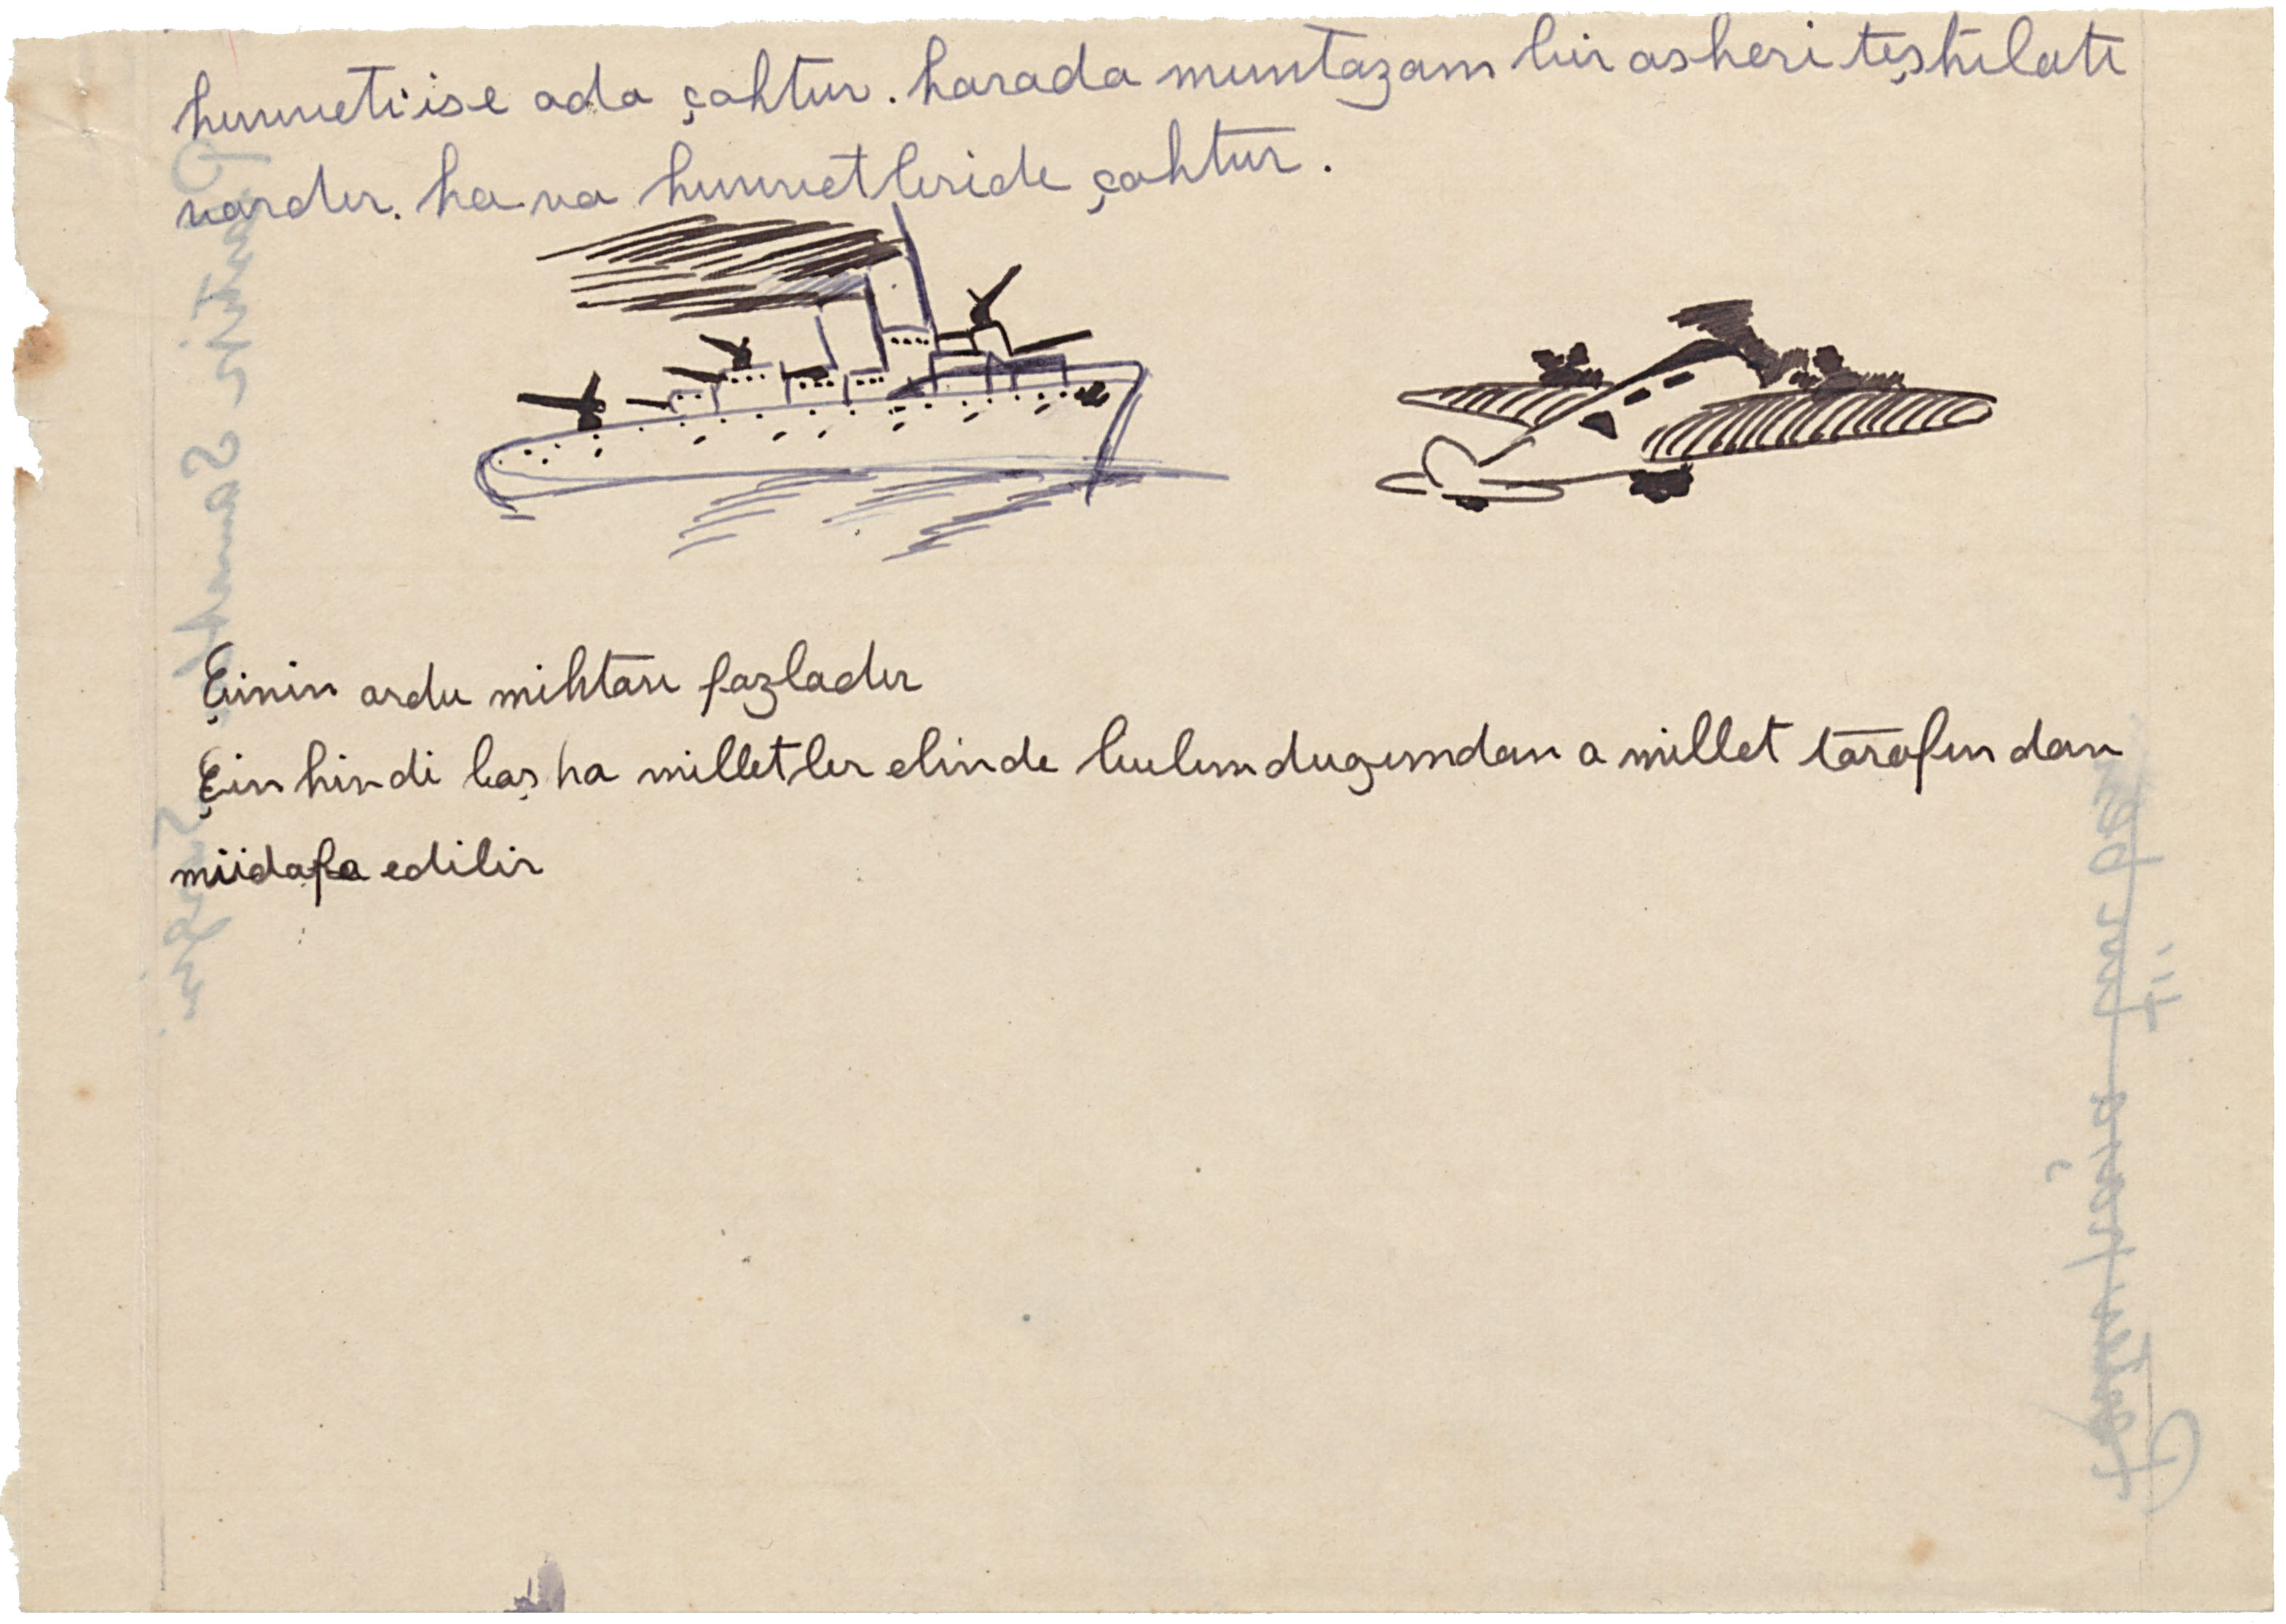 kuvveti ise oda çoktur. karada muntazam bir askeri teşkilatı
vardır. hava kuvvetleride çoktur.
Çinin ordu miktarı fazladır
Çin hindi başka milletler elinde bulundugundan o millet tarafından
müdafa edilir